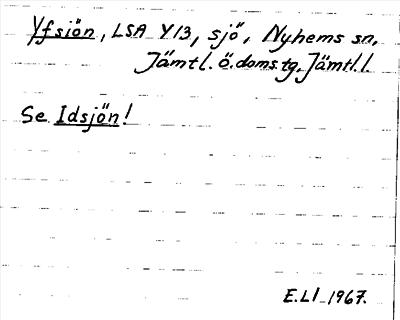 Yfsiön, LSA Y13, sjö, Nyhems sn,
Jämtl. ö. doms. tg. Jämtl. l.
Se Idsjön!
E. Ll 1967.